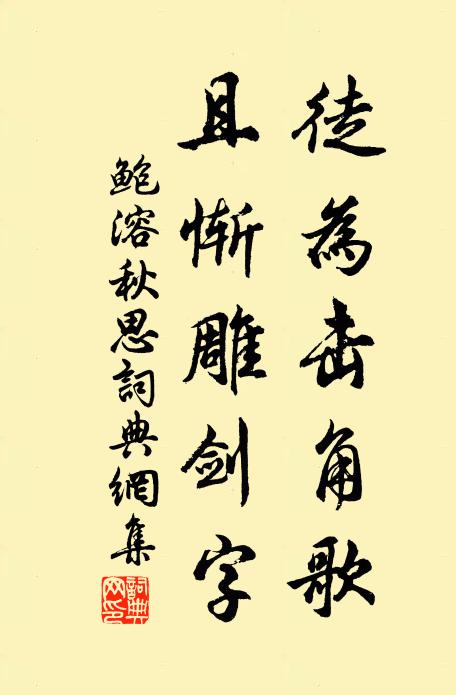 徒為击角歌
且惭雕剑字
鲍溶秋思詞典網集
詞典網印